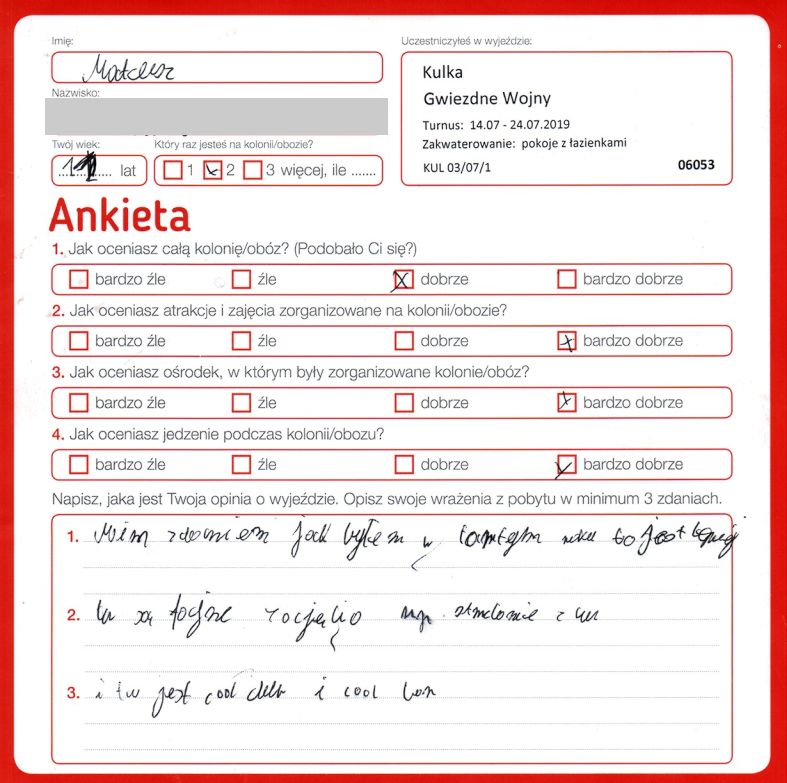 Imię:
Mateusz
Uczestniczyłeś w wyjeździe:
Kulka
Gwiezdne Wojny
Turnus: 14.07 - 24.07.2019
Zakwaterowanie: pokoje z łazienkami
KUL 03/07/1
06053
Nazwisko:
Twój wiek:
lat
Który raz jesteś na kolonii/obozie?
1 2 3 więcej, ile .......
Ankieta
1. Jak oceniasz całą kolonię/obóz? (Podobało Ci się?)
bardzo źle źle dobrze bardzo dobrze
2. Jak oceniasz atrakcje i zajęcia zorganizowane na kolonii/obozie?
bardzo źle źle dobrze bardzo dobrze
3. Jak oceniasz ośrodek, w którym były zorganizowane kolonie/obóz?
bardzo źle źle dobrze bardzo dobrze
4. Jak oceniasz jedzenie podczas kolonii/obozu?
bardzo źle źle dobrze bardzo dobrze
Napisz, jaka jest Twoja opinia o wyjeździe. Opisz swoje wrażenia z pobytu w minimum 3 zdaniach.
1. Moim zdaniem jak byłem w tamtym roku to jest lepiej
2. tu są fajne zajęcia np. strzelanie z
3. i tu jest cool i cool